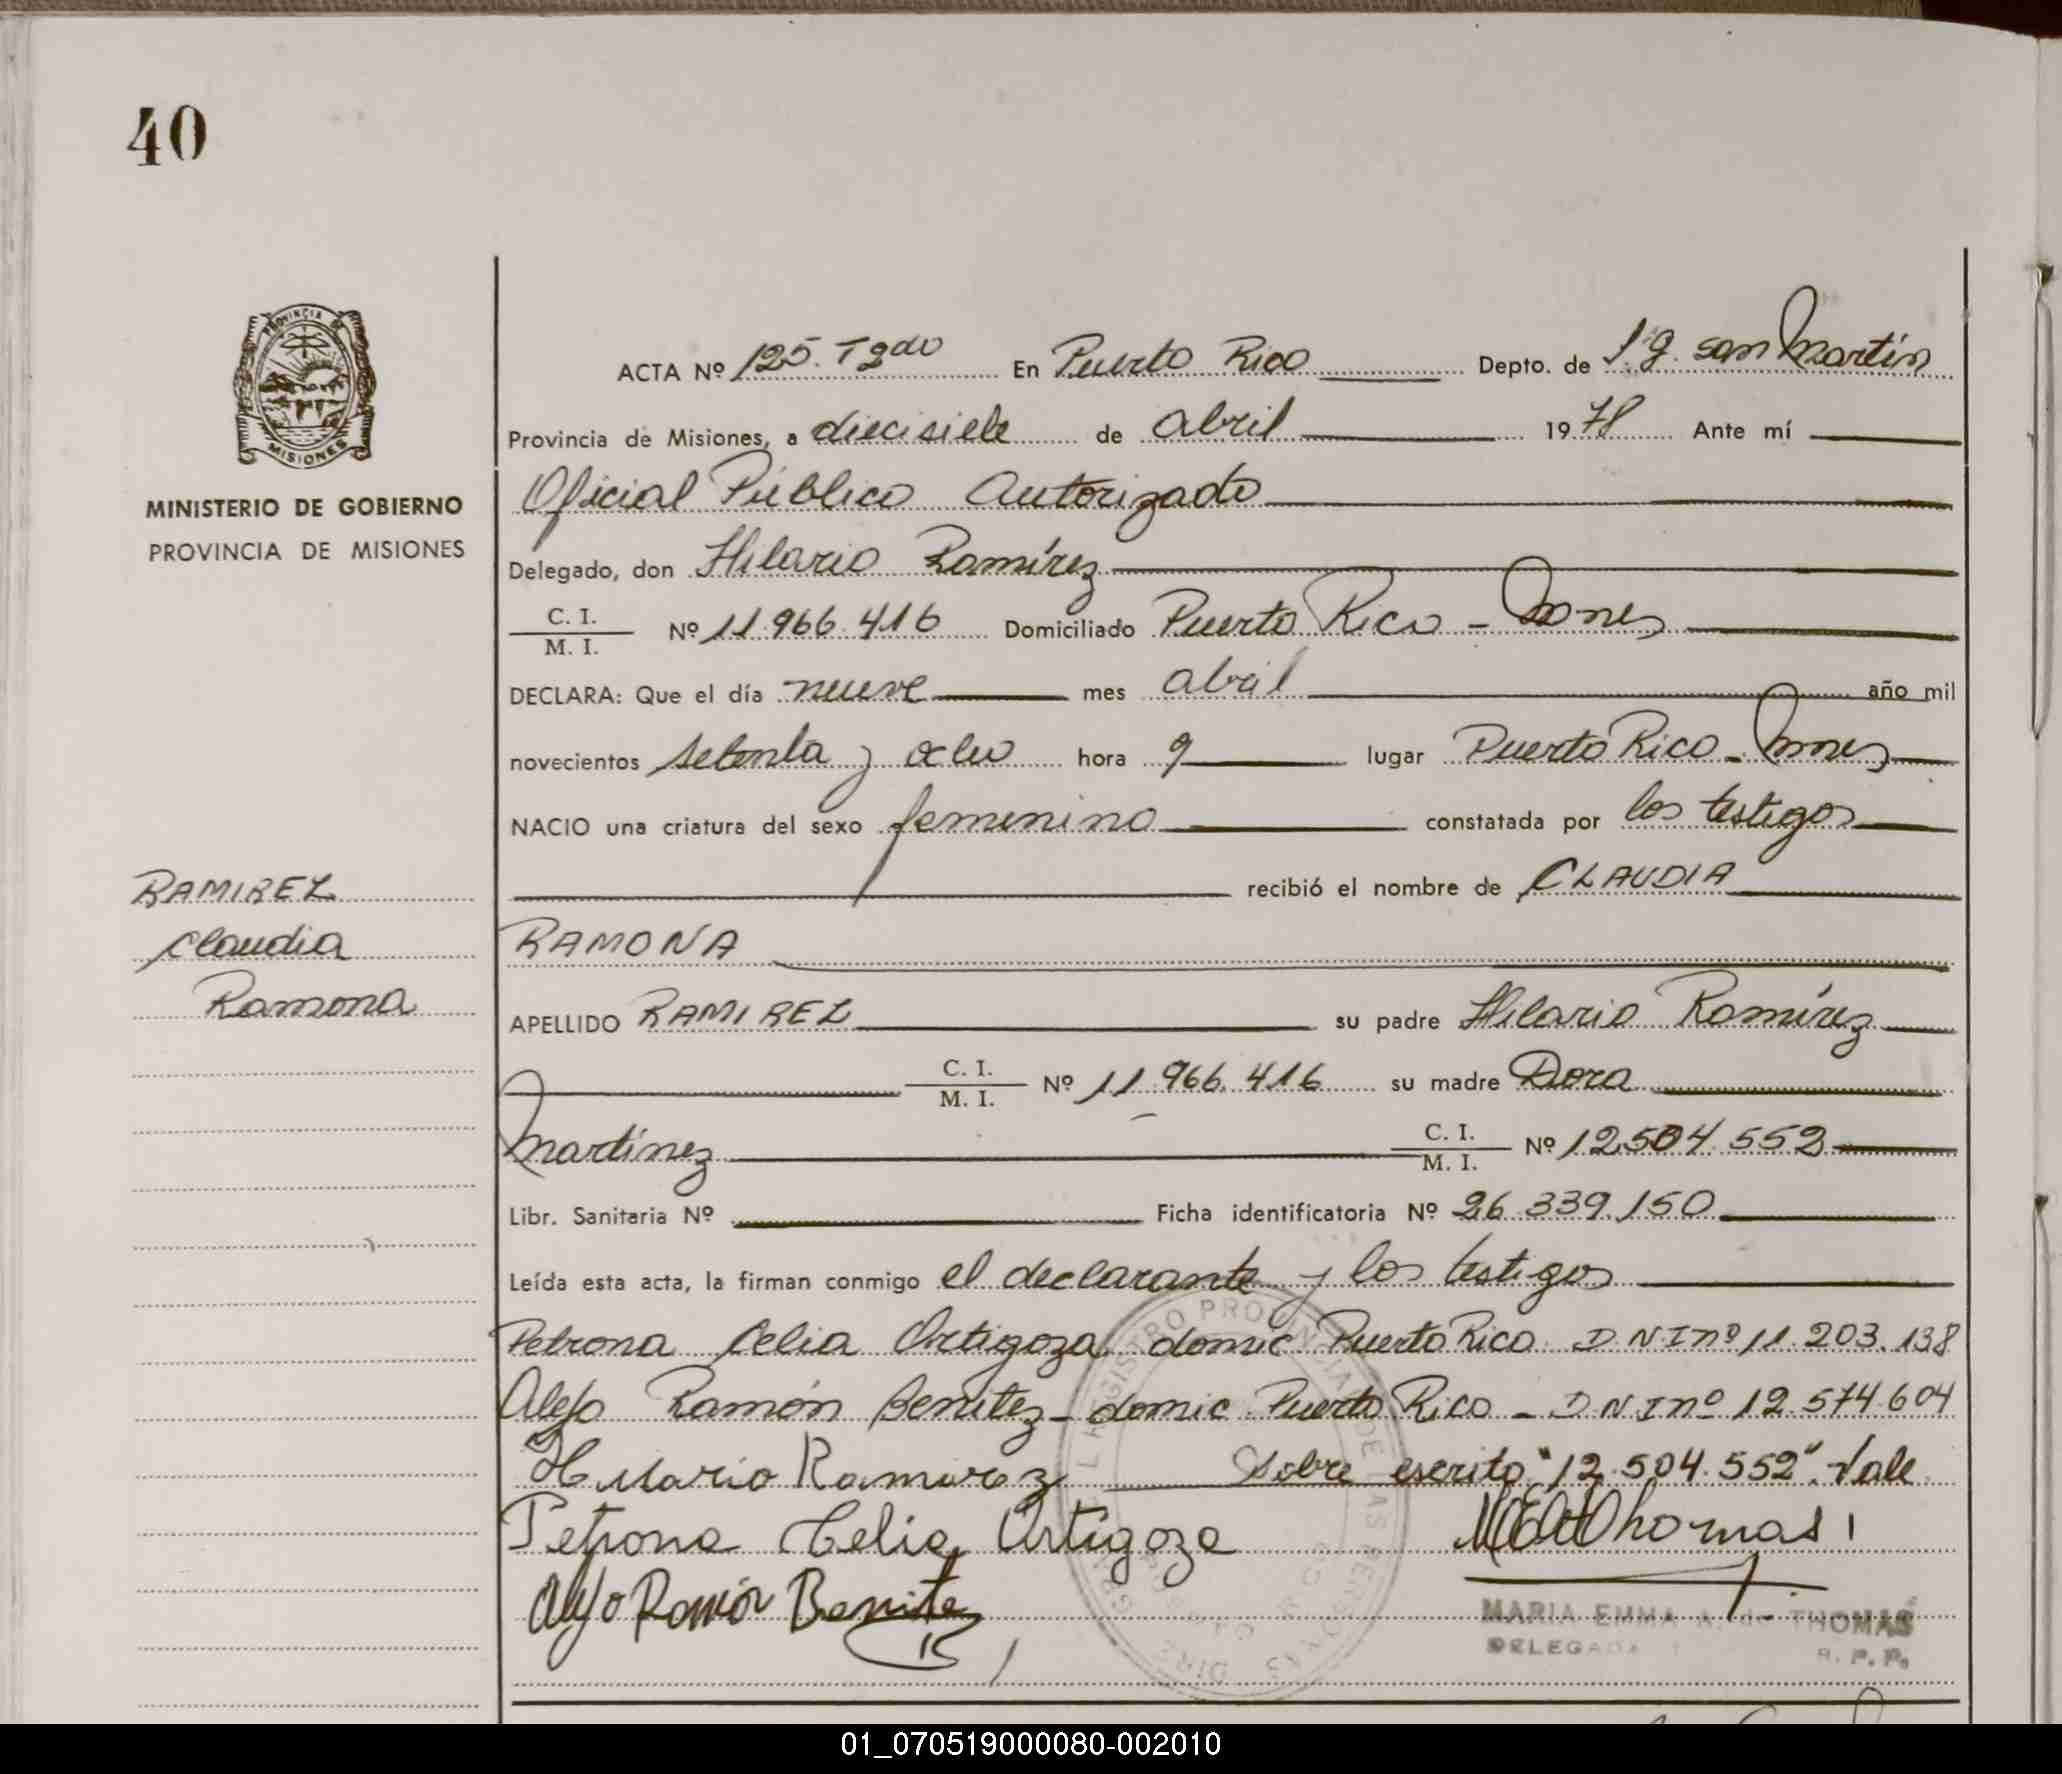 40
PROVINCIA DE
MISIONES
MINISTERIO DE GOBIERNO
PROVINCIA DE MISIONES
RAMIREZ
Claudia
Ramona
ACTA Nº 125. Tº 2do En Puerto Rico Depto. de L. g. san Martín
Provincia de Misiones, a diecisiete de abril 1978 Ante mí
Oficial Público Autorizado
Delegado, don Hilario Ramírez
C. I.
M. I. Nº 11.966.416 Domiciliado Puerto Rico - Mnes
DECLARA: Que el día nueve mes abril año mil
novecientos setenta y ocho hora 9 lugar Puerto Rico - Mnes
NACIO una criatura del sexo femenino constatada por los testigos
recibió el nombre de CLAUDIA
RAMONA
APELLIDO RAMIREZ su padre Hilario Ramírez
C. I.
M. I. Nº 11.966.416 su madre Dora
Martínez C. I.
M. I. Nº 12.504.552
Libr. Sanitaria Nº Ficha identificatoria Nº 26.339.150
Leída esta acta, la firman conmigo el declarante y los testigos
Petrona Celia Ortigoza domic Puerto Rico D N I nº 11.203.138
Alejo Ramón Benitez - domic Puerto Rico - D N I nº 12.574.604
Hilario Ramirez Sobre escrito "12.504.552". Vale
Petrona Celia Ortigoza
Alejo Ramón Benitez
MARIA EMMA A. de THOMAS
DELEGADA R. P. P.
01_070519000080-002010